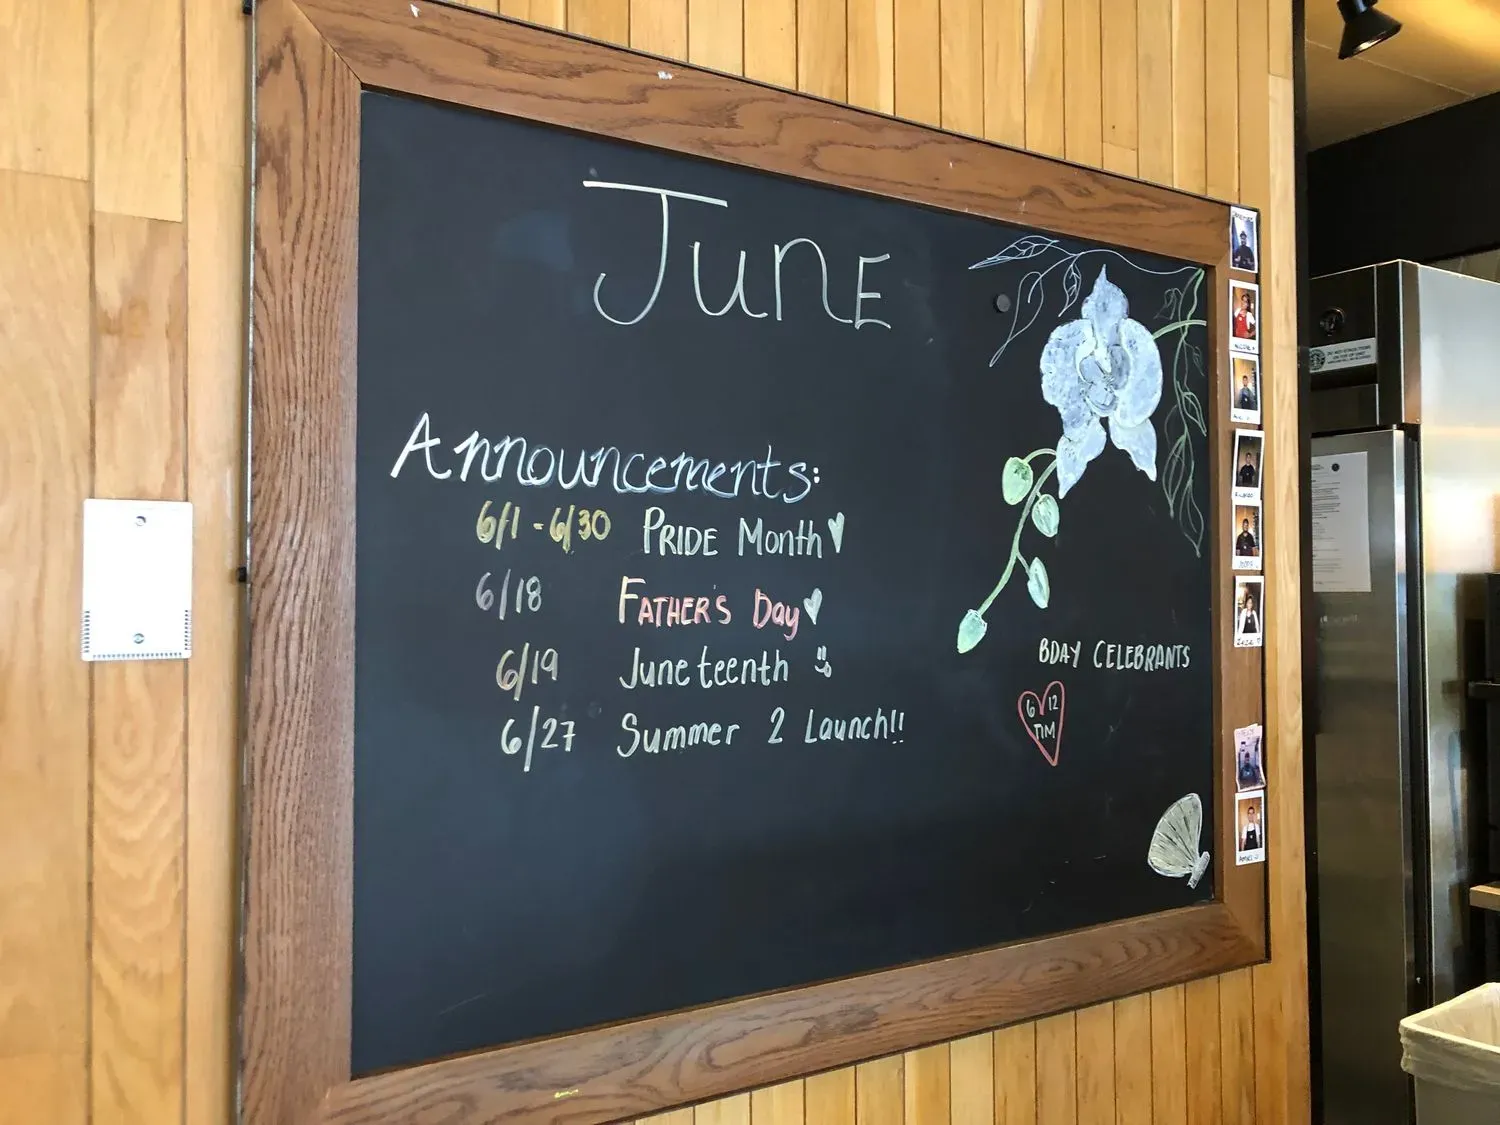 June
Announcements:
6/1 - 6/30 PRIDE Month
6/18 FATHER'S Day
6/19 Juneteenth
6/27 Summer 2 Launch!!
BDAY CELEBRANTS
6 12
TIM